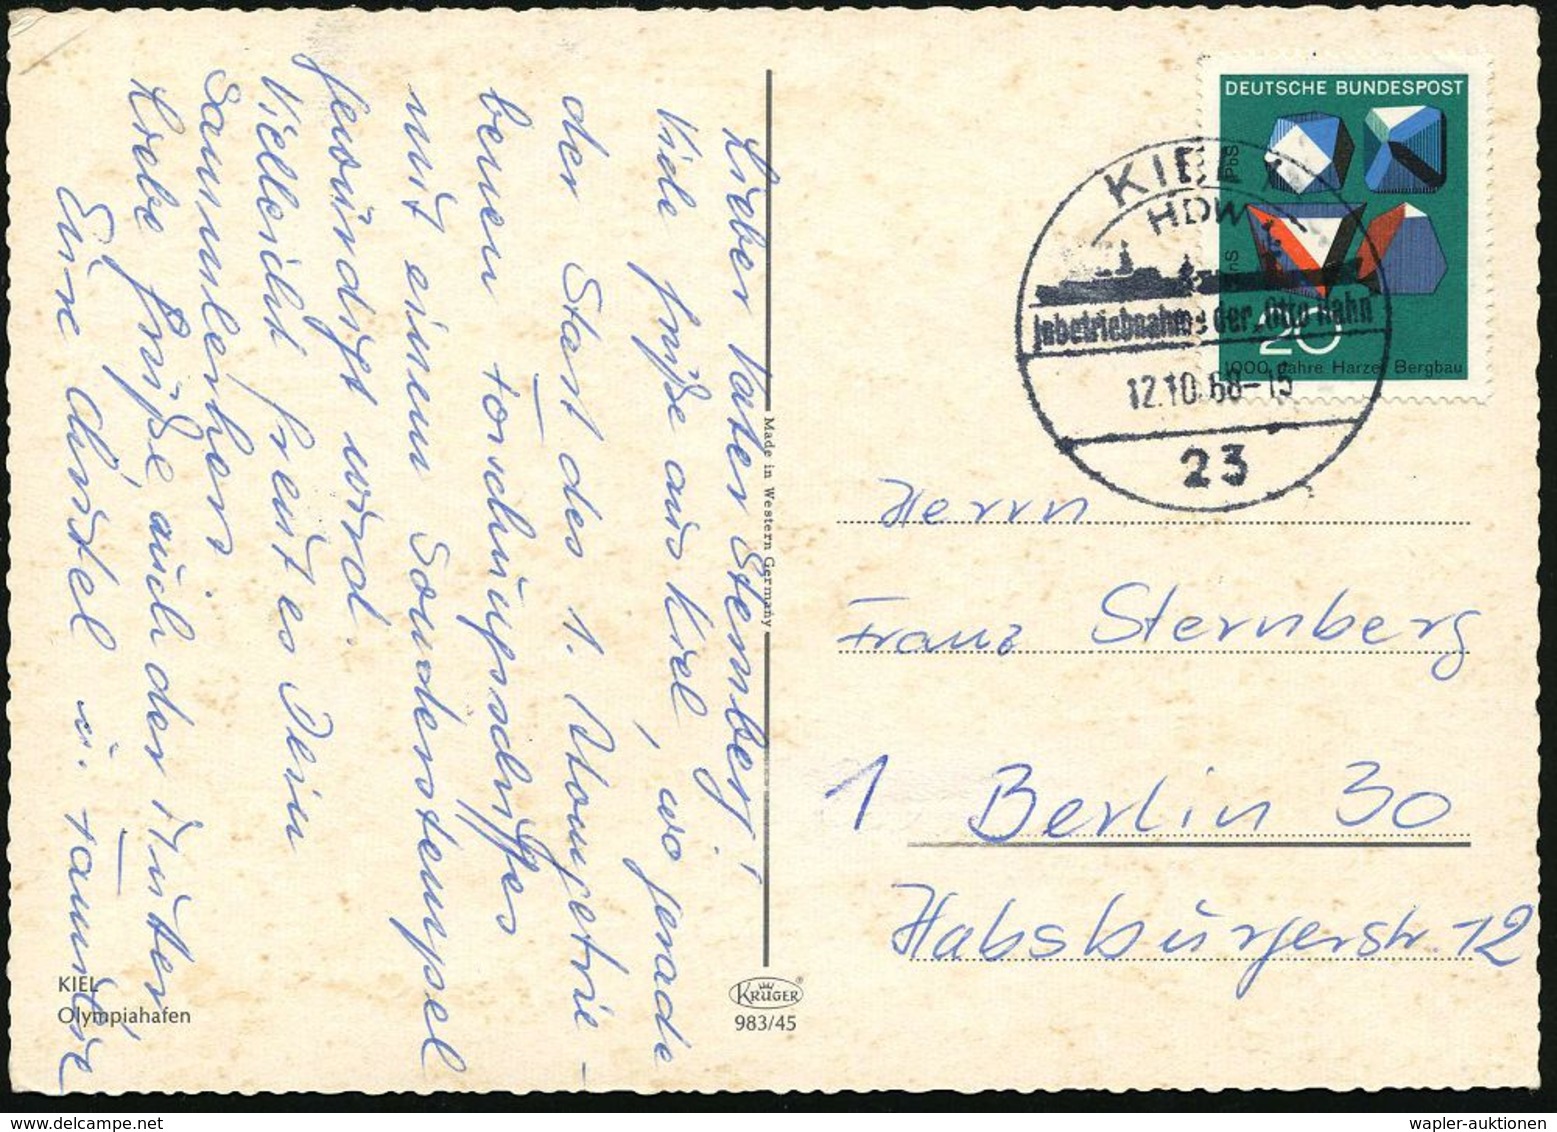 Lieber Vater Sternberg!
Viele Grüße aus Kiel, wo gerade
der Start des 1. Atomgetrie-
benen Forschungsschiffes
mit einem Sonderstempel
gewürdigt wird.
Vielleicht freut es Dein
Sammlerherz.
Liebe Grüße auch der Mutter
Eure Christel u. Familie
KIEL
Olympiahafen
Made in Western Germany
KRÜGER
983/45
DEUTSCHE BUNDESPOST
PbS
ZnS
20
1000 Jahre Harzer Bergbau
KIEL 1
HDW
Inbetriebnahme der „Otto Hahn"
12.10.68-15
23
Herrn
Franz Sternberg
1 Berlin 30
Habsburgerstr. 12
wapler-auktionen